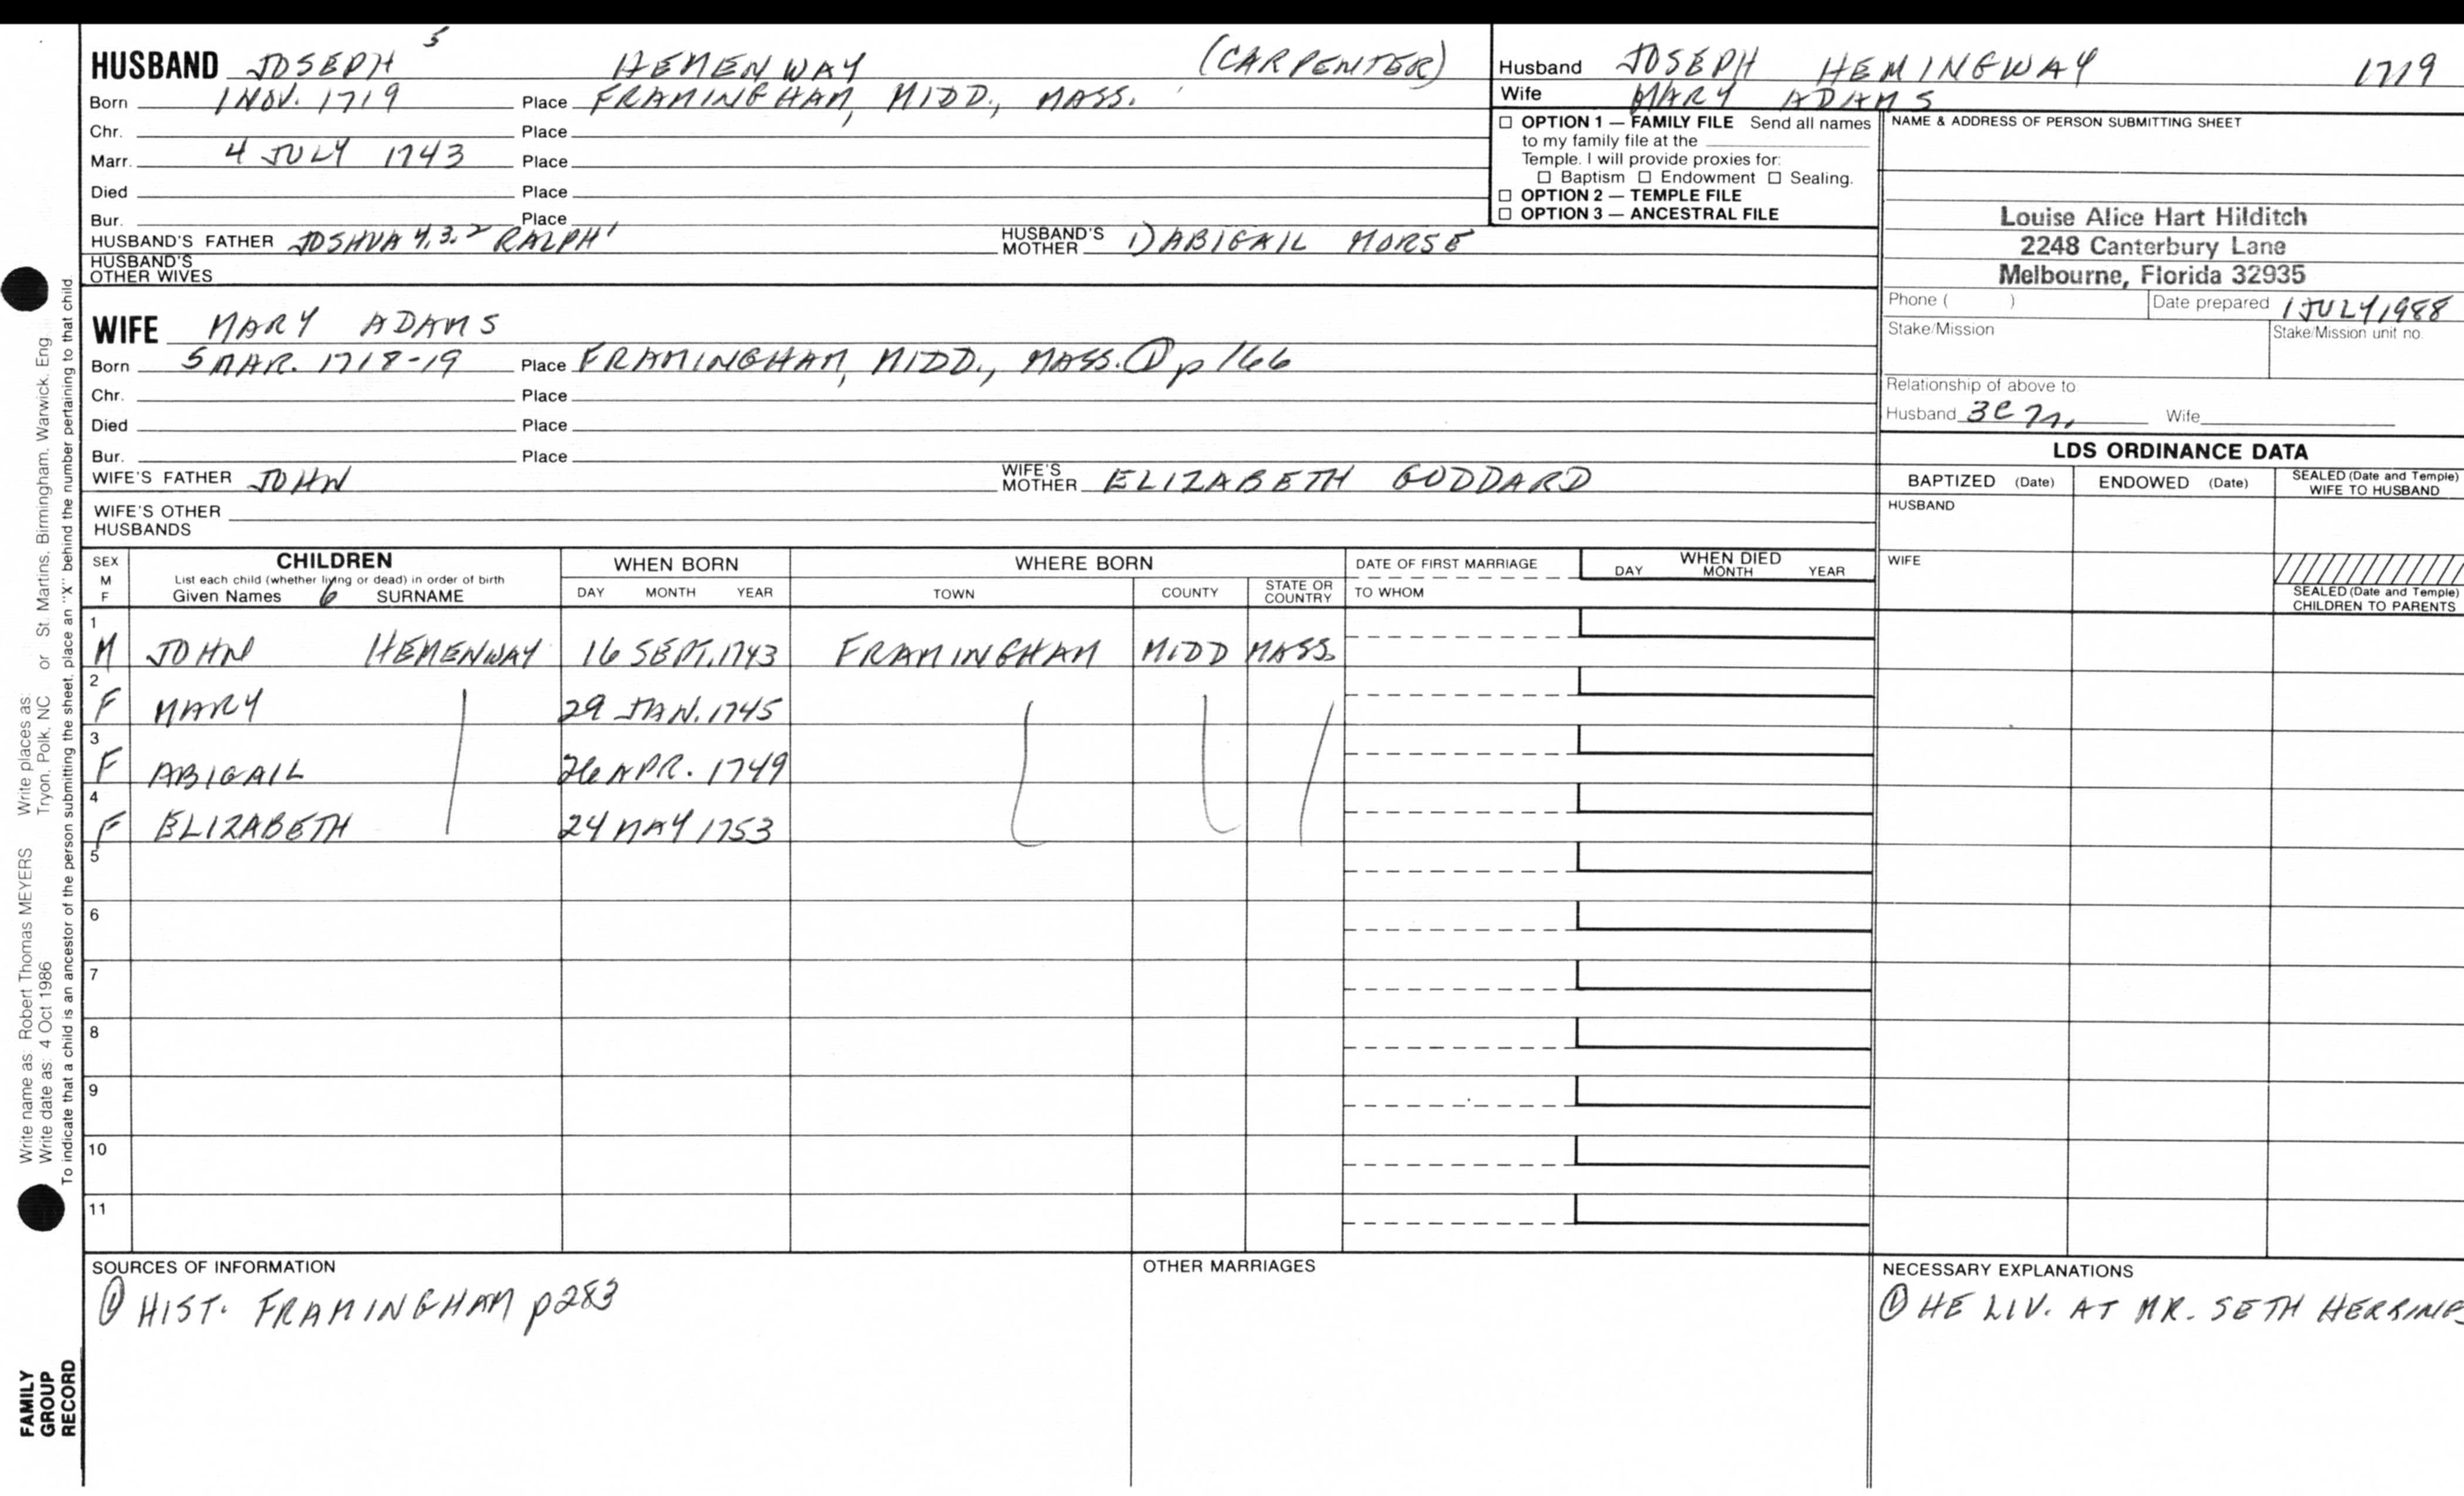 HUSBAND JOSEPH 5 HEMENWAY (CARPENTER)
Born 1 NOV. 1719 Place FRAMINGHAM, MIDD., MASS.
Chr. Place
Marr. 4 JULY 1743 Place
Died Place
Bur. Place
HUSBAND'S FATHER JOSHUA 4,3,2 RALPH 1 HUSBAND'S MOTHER 1) ABIGAIL MORSE
HUSBAND'S OTHER WIVES
WIFE MARY ADAMS
Born 5 MAR. 1718-19 Place FRAMINGHAM, MIDD., MASS. ① p 166
Chr. Place
Died Place
Bur. Place
WIFE'S FATHER JOHN WIFE'S MOTHER ELIZABETH GODDARD
WIFE'S OTHER HUSBANDS
Husband JOSEPH HEMINGWAY 1719
Wife MARY ADAMS
☐ OPTION 1 — FAMILY FILE Send all names
to my family file at the
Temple. I will provide proxies for:
☐ Baptism ☐ Endowment ☐ Sealing.
☐ OPTION 2 — TEMPLE FILE
☐ OPTION 3 — ANCESTRAL FILE
NAME & ADDRESS OF PERSON SUBMITTING SHEET
Louise Alice Hart Hilditch
2248 Canterbury Lane
Melbourne, Florida 32935
Phone ( ) Date prepared 1 JULY 1988
Stake/Mission Stake/Mission unit no.
Relationship of above to
Husband 3C Wife
LDS ORDINANCE DATA
BAPTIZED (Date) ENDOWED (Date) SEALED (Date and Temple) WIFE TO HUSBAND
HUSBAND
WIFE
SEALED (Date and Temple) CHILDREN TO PARENTS
SEX M F
CHILDREN
List each child (whether living or dead) in order of birth
Given Names 6 SURNAME
WHEN BORN
DAY MONTH YEAR
WHERE BORN
TOWN COUNTY STATE OR COUNTRY
DATE OF FIRST MARRIAGE
TO WHOM
WHEN DIED
DAY MONTH YEAR
1 M JOHN HEMENWAY 16 SEPT. 1743 FRAMINGHAM MIDD MASS.
2 F MARY 29 JAN. 1745
3 F ABIGAIL 26 APR. 1749
4 F ELIZABETH 24 MAY 1753
5
6
7
8
9
10
11
SOURCES OF INFORMATION
① HIST. FRAMINGHAM p283
OTHER MARRIAGES
NECESSARY EXPLANATIONS
① HE LIV. AT MR. SETH HERRING
Write name as: Robert Thomas MEYERS Write places as:
Write date as: 4 Oct 1986 Tryon, Polk, NC or St. Martins, Birmingham, Warwick, Eng.
To indicate that a child is an ancestor of the person submitting the sheet, place an "X" behind the number pertaining to that child.
FAMILY
GROUP
RECORD